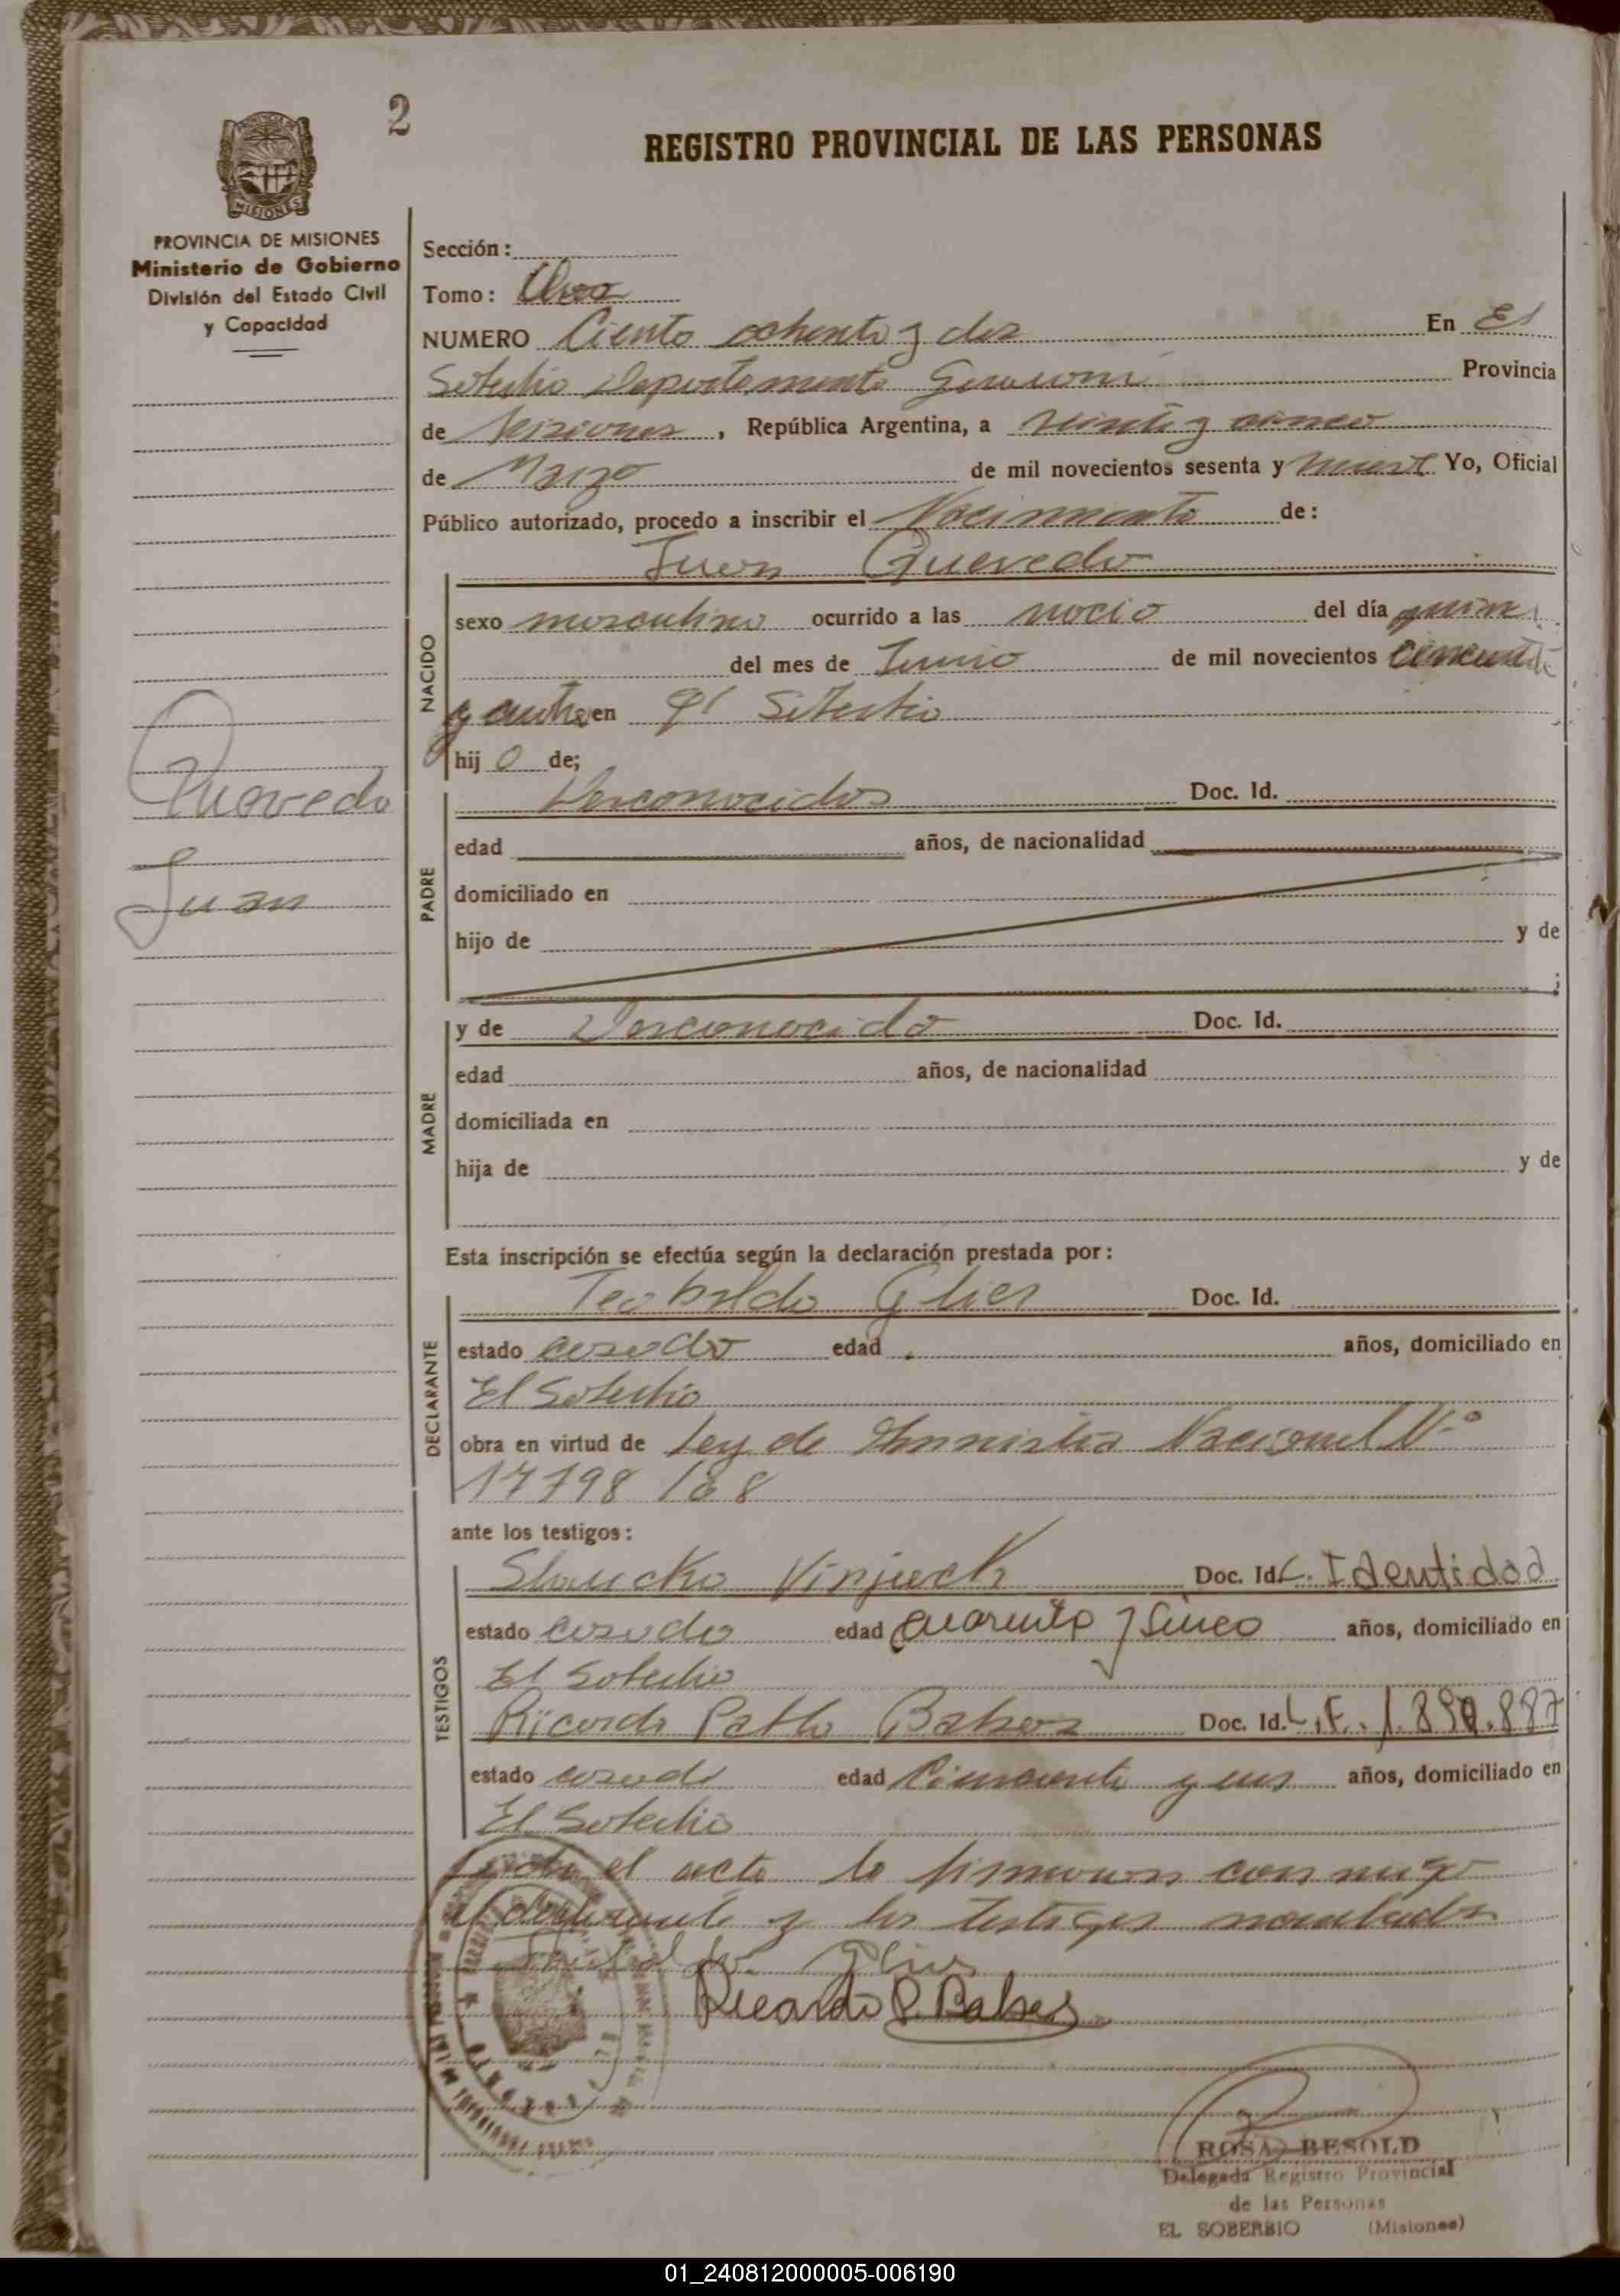 2
REGISTRO PROVINCIAL DE LAS PERSONAS
PROVINCIA DE MISIONES
Ministerio de Gobierno
División del Estado Civil
y Capacidad
Sección:
Tomo:
NUMERO Ciento ochenta y dos En El
Soberbio Departamento Guarani Provincia
de Misiones, República Argentina, a veinti y cinco
de Marzo de mil novecientos sesenta y nueve Yo, Oficial
Público autorizado, procedo a inscribir el Nacimiento de:
Juan Quevedo
NACIDO
sexo masculino ocurrido a las nació del día
del mes de Junio de mil novecientos
en El Soberbio
hij o de;
Quevedo
Juan
PADRE
Desconocidos Doc. Id.
edad años, de nacionalidad
domiciliado en
hijo de y de
;
MADRE
y de Desconocido Doc. Id.
edad años, de nacionalidad
domiciliada en
hija de y de
Esta inscripción se efectúa según la declaración prestada por:
DECLARANTE
Teobaldo Glier Doc. Id.
estado casado edad años, domiciliado en
El Soberbio
obra en virtud de Ley de Amnistia Nacional N.°
17798/68
ante los testigos:
TESTIGOS
Doc. Id. C. Identidad
estado casado edad cuarenta y Sinco años, domiciliado en
El Soberbio
Ricardo Doc. Id. L.E.
estado casado edad Cincuenta y un años, domiciliado en
El Soberbio
el acta la firmaron conmigo
el declarante y los testigos
Ricardo P.
ROSA BESOLD
Delegada Registro Provincial
de las Personas
EL SOBERBIO (Misiones)
01_240812000005-006190